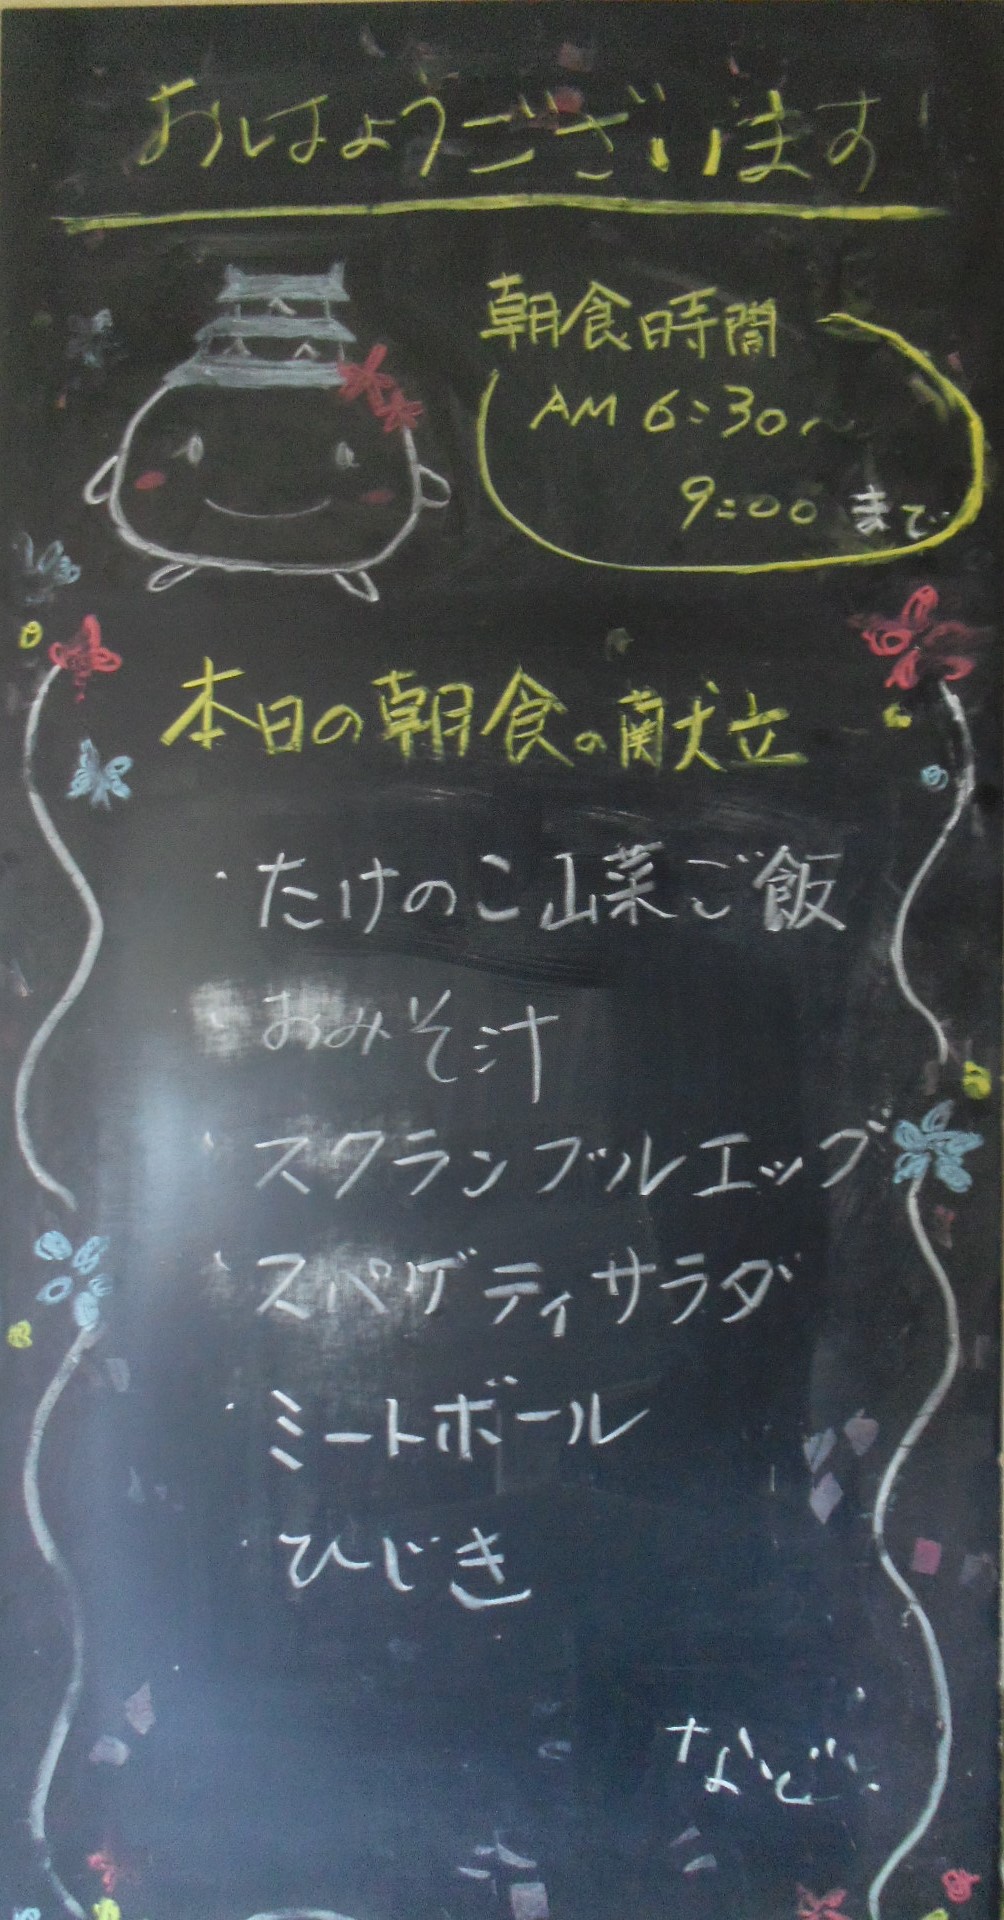 おはようございます
朝食時間
AM 6:30〜
9:00 まで
本日の朝食の献立
・たけのこ山菜ご飯
・おみそ汁
・スクランブルエッグ
・スパゲティサラダ
・ミートボール
・ひじき
など